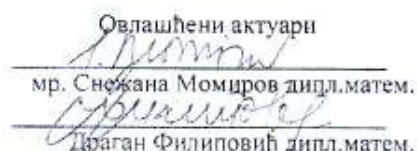 Овлашћени актуари
мр. Снежана Момиров дипл.матем.
Драган Филиповић дипл.матем.